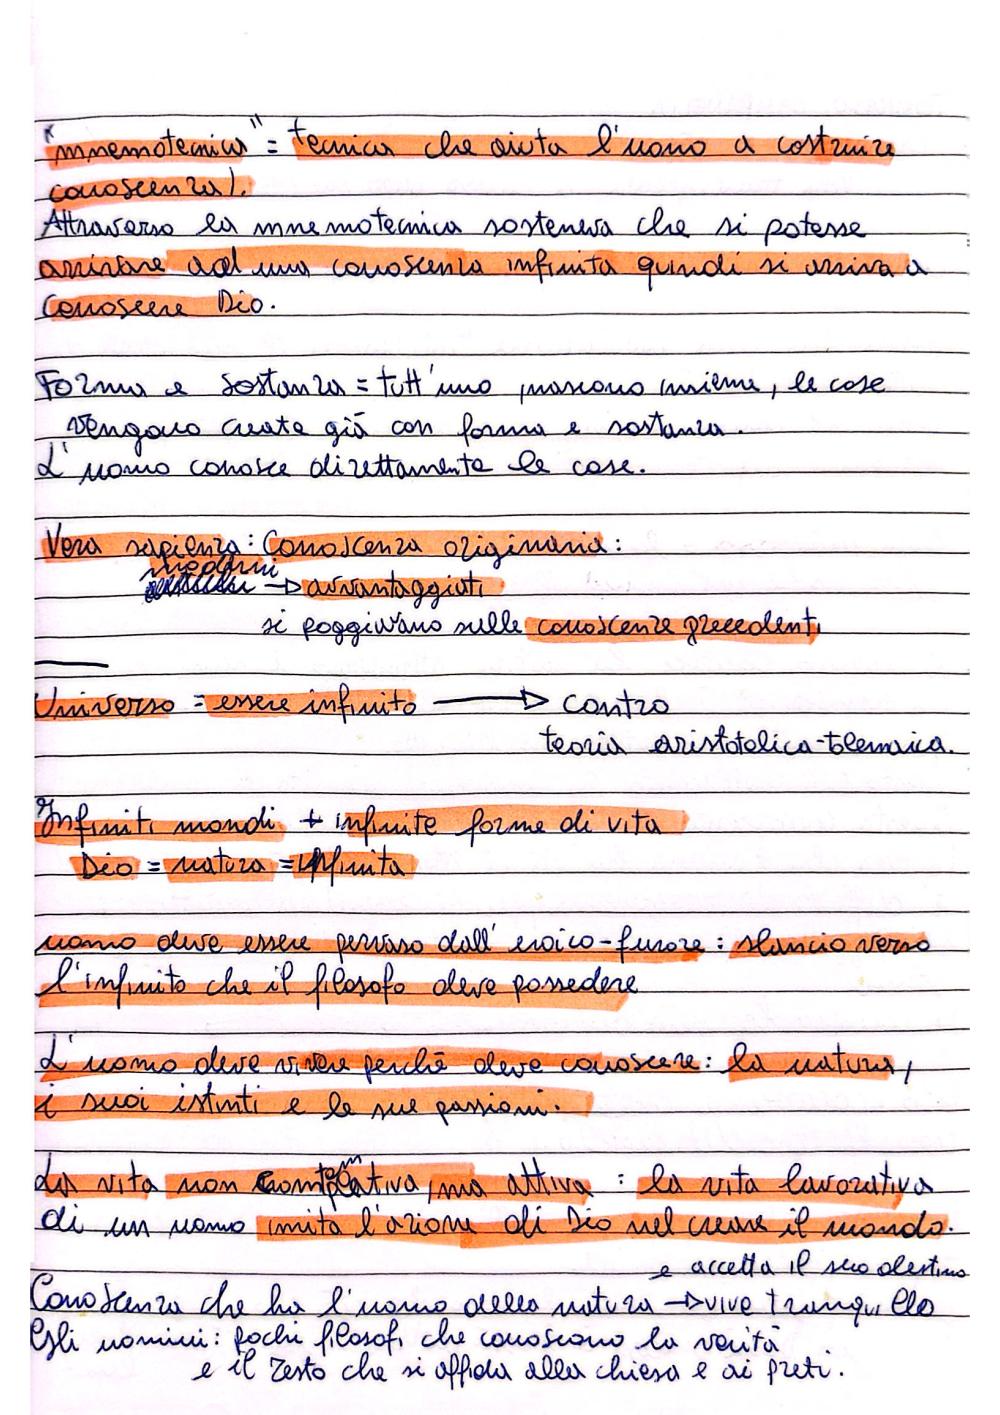 "mnemotecnica" = tecnica che aiuta l'uomo a costruire
conoscenza).
Attraverso la mnemotecnica sosteneva che si potesse
arrivare ad una conoscenza infinita quindi si arriva a
conoscere Dio.
Forma e sostanza = tutt'uno nascono insieme, le cose
vengono create già con forma e sostanza.
L'uomo conosce direttamente le cose.
Vera sapienza: Conoscenza originaria:
moderni
→ avvantaggiati
si poggiavano sulle conoscenze precedenti
Universo = essere infinito → contro
teoria aristotelica-tolemaica.
Infiniti mondi + infinite forme di vita
Dio = natura = infinita
uomo deve essere pervaso dall'eroico-furore: slancio verso
l'infinito che il filosofo deve possedere
L'uomo deve vivere perchè deve conoscere: la natura,
i suoi istinti e le sue passioni.
La vita non contemplativa, ma attiva: la vita lavorativa
di un uomo imita l'azione di Dio nel creare il mondo.
e accetta il suo destino
Conoscenza che ha l'uomo della natura → vive tranquillo
Gli uomini: pochi filosofi che conoscono la verità
e il resto che si affida alla chiesa e ai preti.